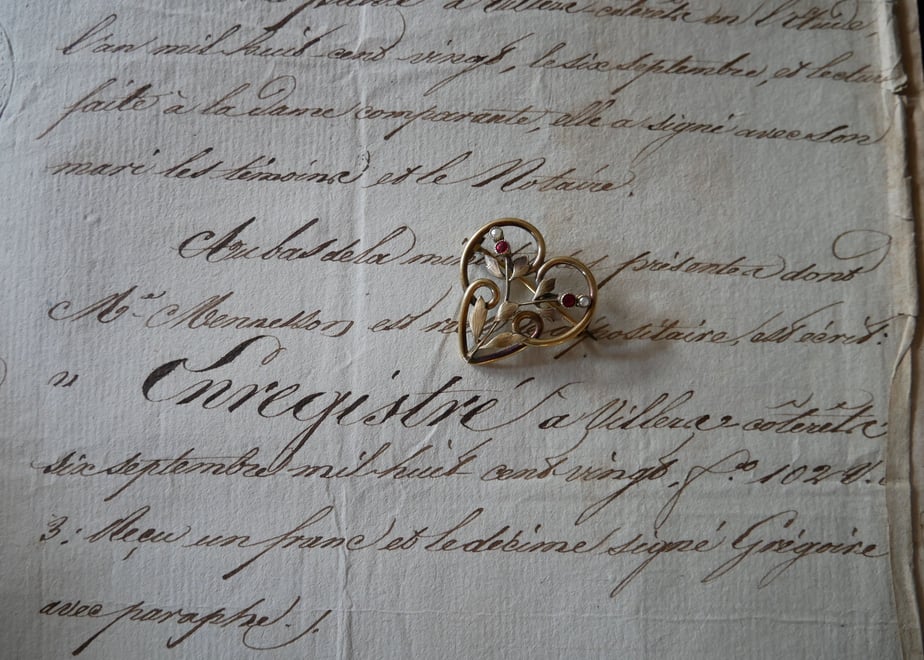 à Villers-cotterêts en l'étude
l'an mil huit cent vingt, le six septembre, et lecture
faite à la dame comparante, elle a signé avec son
mari les témoins et le Notaire.
Au bas de la présente dont
Me Mennesson est dépositaire, est écrit:
" Enregistré à Villers-coterêts
six septembre mil huit cent vingt, fo. 102 V.
3: Reçu un franc et le décime signé Grégoire
avec paraphe ./.